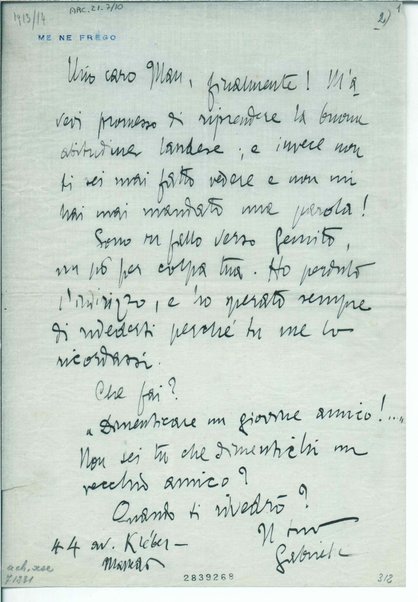 1413/14
ARC.21.7/10
2) 1
ME NE FREGO
Mio caro Man, finalmente! M'a
vevi promesso di riprendere la buona
abitudine landese; e invece non
ti sei mai fatto vedere e non mi
hai mai mandato una parola!
Sono in fallo verso Gemito,
un pò per colpa tua. Ho perduto
l'indirizzo, e ho sperato sempre
di rivederti perché tu me lo
ricordassi.
Che fai?
"Dimenticare un giovine amico!..."
Non sei tu che dimentichi un
vecchio amico?
Quando ti rivedrò?
Il tuo
44 av. Kléber —
Gabriele
2839268
312